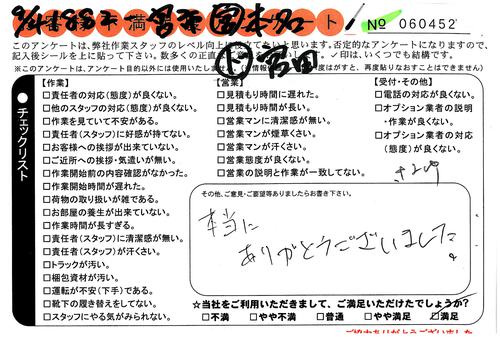 お客様不満足アンケート
№ 060452
このアンケートは、弊社作業スタッフのレベル向上に役立てたいと思います。否定的なアンケートになりますので、
※このアンケートは、アンケート目的以外には使用いたしません。
チェックリスト
【作業】
□責任者の対応(態度)が良くない。
□他のスタッフの対応(態度)が良くない。
□作業を見ていて不安がある。
□責任者(スタッフ)に好感が持てない。
□お客様への挨拶が出来ていない。
□ご近所への挨拶・気遣いが無い。
□作業開始前の内容確認がなかった。
□作業開始時間が遅れた。
□荷物の取り扱いが雑である。
□お部屋の養生が出来ていない。
□作業時間が長すぎる。
□責任者(スタッフ)に清潔感が無い。
□責任者(スタッフ)が汗くさい。
□トラックが汚い。
□梱包資材が汚い。
□運転が不安(下手)である。
□靴下の履き替えをしてない。
□スタッフにやる気がみられない。
【営業】
□見積もり時間に遅れた。
□見積もり時間が長い。
□営業マンに清潔感が無い。
□営業マンが煙草くさい。
□営業マンが汗くさい。
□営業態度が良くない。
□営業の説明と作業が一致してない。
【受付・その他】
□電話の対応が良くない。
□オプション業者の説明
・作業が良くない。
□オプション業者の対応
(態度)が良くない。
その他、ご意見・ご要望等ありましたらお書き下さい。
本当に
ありがとうございました。
☆当社をご利用いただきまして、ご満足いただけたでしょうか?
□不満 □やや不満 □普通 □やや満足 ☑満足